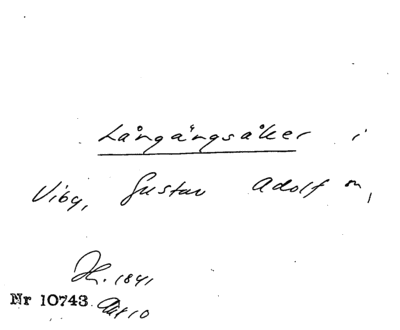 Långängsåker i
Viby, Gustav Adolf sn,
H. 1841
Nr 10743 Akt 10